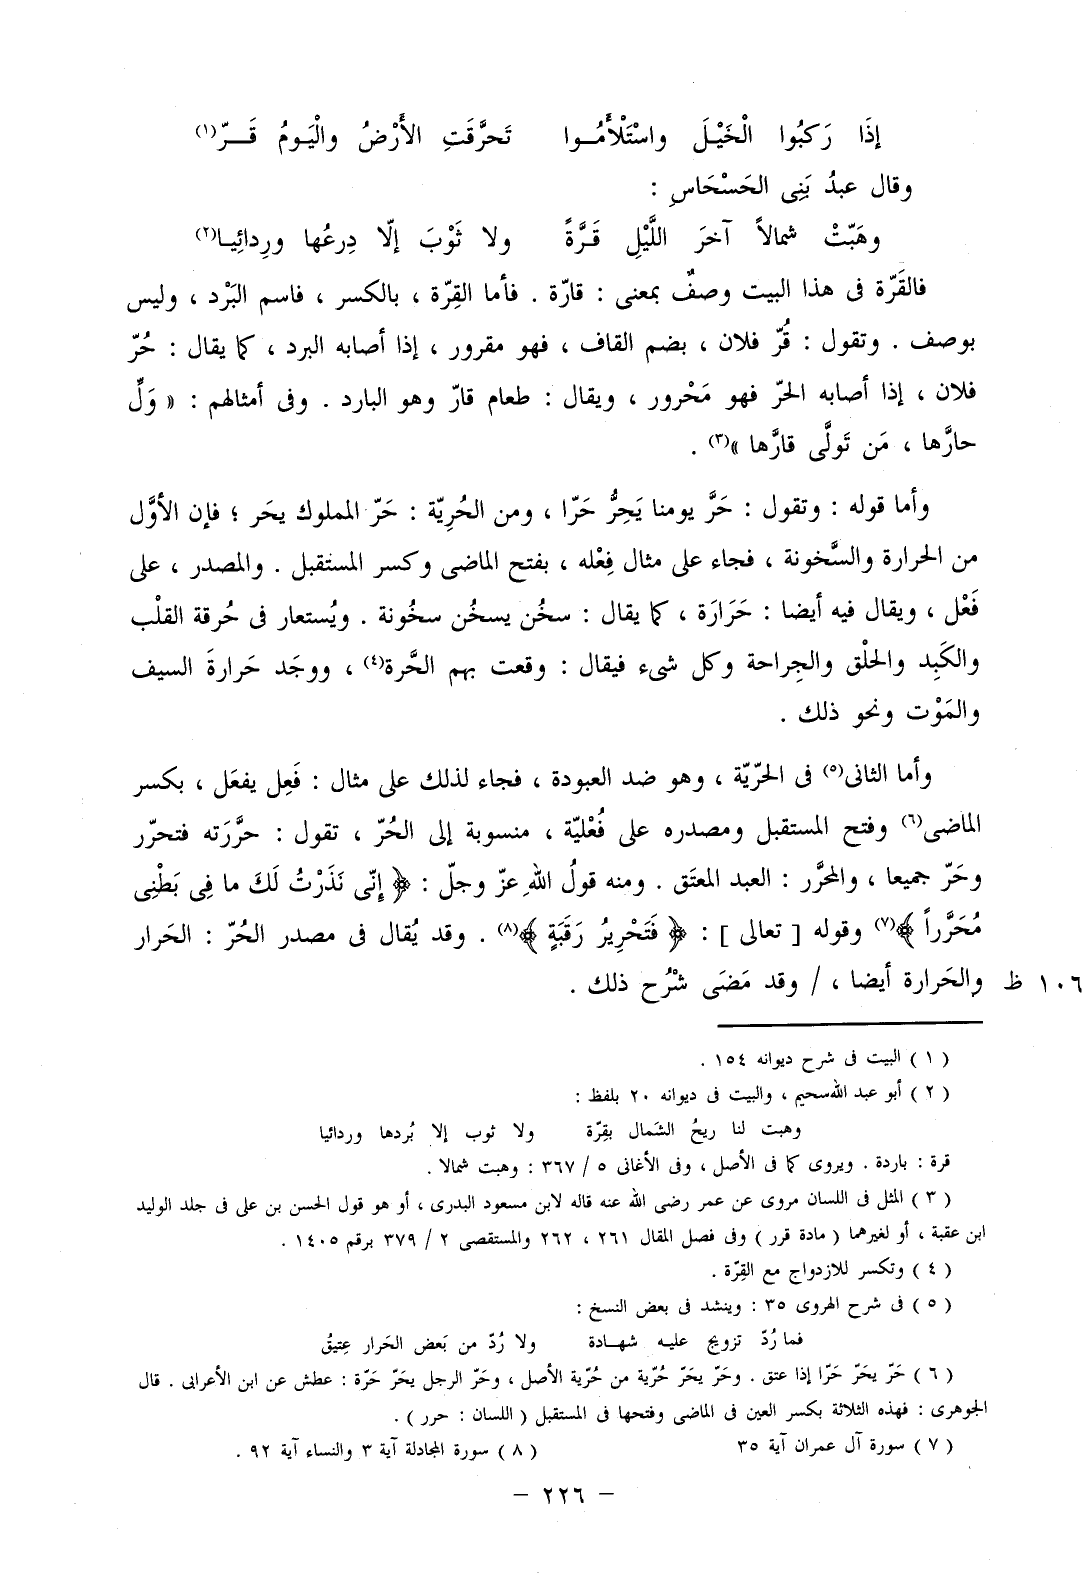 إذَا رَكبُوا الْخَيْـلَ واسْتَلْأَمُـوا تَحرَّقَتِ الأَرْضُ والْيَـومُ قَـرّ(١)
وقال عبدُ بَنِى الحَسْحَاسِ :
وهَبّتْ شمالاً آخرَ اللَّيْلِ قَـرَّةً ولا ثَوْبَ إلّا دِرعُها ورِدائِيـا(٢)
فالقَرّة فى هذا البيت وصفٌ بمعنى : قارّة . فأما القِرّة ، بالكسر ، فاسم البَرْد ، وليس
بوصف . وتقول : قُرّ فلان ، بضم القاف ، فهو مقرور ، إذا أصابه البرد ، كما يقال : حُرّ
فلان ، إذا أصابه الحرّ فهو مَحْرور ، ويقال : طعام قارّ وهو البارد . وفى أمثالهم : « وَلِّ
حارَّها ، مَن تَولَّى قارَّها »(٣) .
وأما قوله : وتقول : حَرَّ يومنا يَحِرُّ حَرّا ، ومن الحُرِيّة : حَرّ المملوك يحَر ؛ فإن الأوَّل
من الحرارة والسَّخونة ، فجاء على مثال فِعْله ، بفتح الماضى وكسر المستقبل . والمصدر ، على
فَعْل ، ويقال فيه أيضا : حَرَارَة ، كما يقال : سخُن يسخُن سخُونة . ويُستعار فى حُرقة القلْب
والكَبِد والحلْق والجِراحة وكل شىء فيقال : وقعت بهم الحَّرة(٤) ، ووجَد حَرارةَ السيف
والمَوْت ونحو ذلك .
وأما الثانى(٥) فى الحرّيّة ، وهو ضد العبودة ، فجاء لذلك على مثال : فَعِل يفعَل ، بكسر
الماضى(٦) وفتح المستقبل ومصدره على فُعْليّة ، منسوبة إلى الحُرّ ، تقول : حرَّرَته فتحرّر
وحَرّ جميعا ، والمحرَّر : العبد المعتَق . ومنه قولُ اللهِ عزّ وجلّ : ﴿ إنّى نَذَرْتُ لَكَ ما فِى بَطْنِى
مُحَرَّراً ﴾(٧) وقوله [ تعالى ] : ﴿ فَتَحْرِيرُ رَقَبَةٍ ﴾(٨) . وقد يُقال فى مصدر الحُرّ : الحَرار
والحَرارة أيضا ، / وقد مَضَى شَرْح ذلك . ١٠٦ ظ
( ١ ) البيت فى شرح ديوانه ١٥٤ .
( ٢ ) أبو عبد الله سحيم ، والبيت فى ديوانه ٢٠ بلفظ :
وهبت لنا ريحُ الشَمال بقِرّة ولا ثوب إلا بُردها وردائيا
قرة : باردة . ويروى كما فى الأصل ، وفى الأغانى ٥ / ٣٦٧ : وهبت شمالا .
( ٣ ) المثل فى اللسان مروى عن عمر رضى الله عنه قاله لابن مسعود البدرى ، أو هو قول الحسن بن على فى جلد الوليد
ابن عقبة ، أو لغيرهما ( مادة قرر ) وفى فصل المقال ٢٦١ ، ٢٦٢ والمستقصى ٢ / ٣٧٩ برقم ١٤٠٥ .
( ٤ ) وتكسر للازدواج مع القِرّة .
( ٥ ) فى شرح الهروى ٣٥ : وينشد فى بعض النسخ :
فما رُدّ تزويج عليـه شهـادة ولا رُدّ من بَعض الحَرار عِتيقُ
( ٦ ) حَرّ يحَرّ حَرّا إذا عتق . وحَرّ يحَرّ حُرّية من حُرّية الأصل ، وحَرّ الرجل يحَرّ حَرّة : عطش عن ابن الأعرابى . قال
الجوهرى : فهذه الثلاثة بكسر العين فى الماضى وفتحها فى المستقبل ( اللسان : حرر ) .
( ٧ ) سورة آل عمران آية ٣٥ ( ٨ ) سورة المجادلة آية ٣ والنساء آية ٩٢ .
– ٢٢٦ –